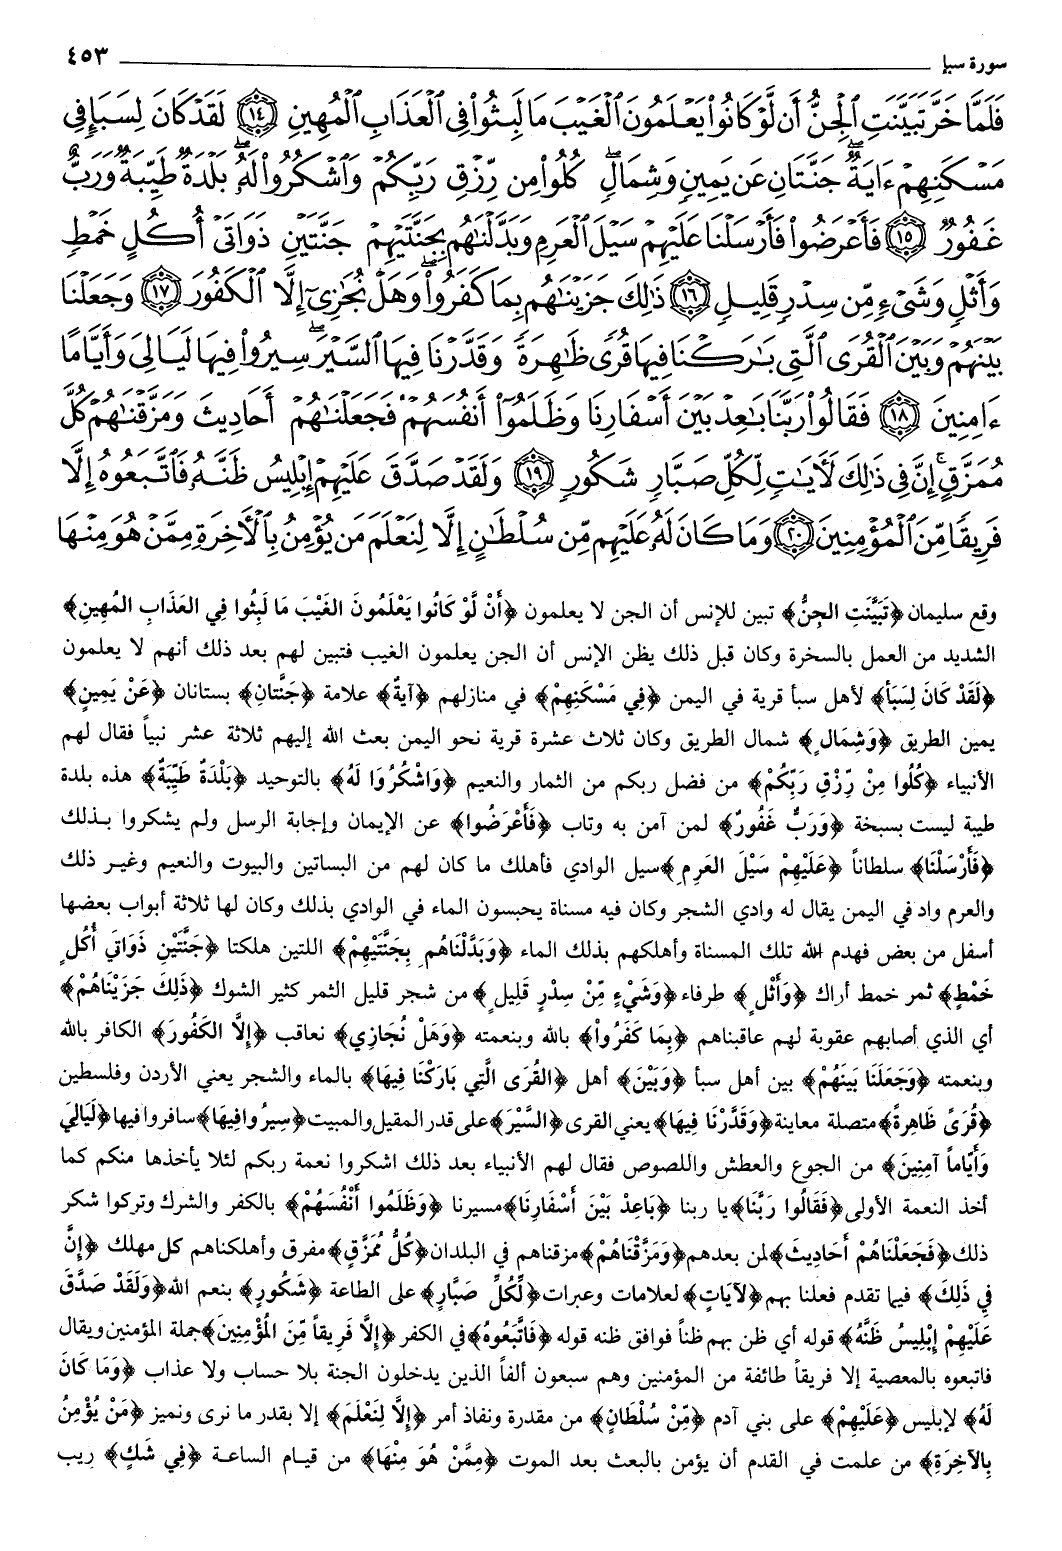 سورة سبإ ٤٥٣
فَلَمَّا خَرَّ تَبَيَّنَتِ ٱلْجِنُّ أَن لَّوْ كَانُوا۟ يَعْلَمُونَ ٱلْغَيْبَ مَا لَبِثُوا۟ فِى ٱلْعَذَابِ ٱلْمُهِينِ ﴿١٤﴾ لَقَدْ كَانَ لِسَبَإٍ فِى
مَسْكَنِهِمْ ءَايَةٌ ۖ جَنَّتَانِ عَن يَمِينٍ وَشِمَالٍ ۖ كُلُوا۟ مِن رِّزْقِ رَبِّكُمْ وَٱشْكُرُوا۟ لَهُۥ ۚ بَلْدَةٌ طَيِّبَةٌ وَرَبٌّ
غَفُورٌ ﴿١٥﴾ فَأَعْرَضُوا۟ فَأَرْسَلْنَا عَلَيْهِمْ سَيْلَ ٱلْعَرِمِ وَبَدَّلْنَٰهُم بِجَنَّتَيْهِمْ جَنَّتَيْنِ ذَوَاتَىْ أُكُلٍ خَمْطٍ
وَأَثْلٍ وَشَىْءٍ مِّن سِدْرٍ قَلِيلٍ ﴿١٦﴾ ذَٰلِكَ جَزَيْنَٰهُم بِمَا كَفَرُوا۟ ۖ وَهَلْ نُجَٰزِىٓ إِلَّا ٱلْكَفُورَ ﴿١٧﴾ وَجَعَلْنَا
بَيْنَهُمْ وَبَيْنَ ٱلْقُرَى ٱلَّتِى بَٰرَكْنَا فِيهَا قُرًى ظَٰهِرَةً وَقَدَّرْنَا فِيهَا ٱلسَّيْرَ ۖ سِيرُوا۟ فِيهَا لَيَالِىَ وَأَيَّامًا
ءَامِنِينَ ﴿١٨﴾ فَقَالُوا۟ رَبَّنَا بَٰعِدْ بَيْنَ أَسْفَارِنَا وَظَلَمُوٓا۟ أَنفُسَهُمْ فَجَعَلْنَٰهُمْ أَحَادِيثَ وَمَزَّقْنَٰهُمْ كُلَّ
مُمَزَّقٍ ۚ إِنَّ فِى ذَٰلِكَ لَءَايَٰتٍ لِّكُلِّ صَبَّارٍ شَكُورٍ ﴿١٩﴾ وَلَقَدْ صَدَّقَ عَلَيْهِمْ إِبْلِيسُ ظَنَّهُۥ فَٱتَّبَعُوهُ إِلَّا
فَرِيقًا مِّنَ ٱلْمُؤْمِنِينَ ﴿٢٠﴾ وَمَا كَانَ لَهُۥ عَلَيْهِم مِّن سُلْطَٰنٍ إِلَّا لِنَعْلَمَ مَن يُؤْمِنُ بِٱلْـَٔاخِرَةِ مِمَّنْ هُوَ مِنْهَا
وقع سليمان ﴿تَبَيَّنَتِ الجِنُّ﴾ تبين للإنس أن الجن لا يعلمون ﴿أَنْ لَّوْ كَانُوا يَعْلَمُونَ الغَيْبَ مَا لَبِثُوا فِي العَذَابِ المُهِينِ﴾
الشديد من العمل بالسخرة وكان قبل ذلك يظن الإنس أن الجن يعلمون الغيب فتبين لهم بعد ذلك أنهم لا يعلمون
﴿لَقَدْ كَانَ لِسَبَأٍ﴾ لأهل سبأ قرية في اليمن ﴿فِي مَسْكَنِهِمْ﴾ في منازلهم ﴿آيةٌ﴾ علامة ﴿جَنَّتانِ﴾ بستانان ﴿عَنْ يَمِينٍ﴾
يمين الطريق ﴿وَشِمَالٍ﴾ شمال الطريق وكان ثلاث عشرة قرية نحو اليمن بعث الله إليهم ثلاثة عشر نبياً فقال لهم
الأنبياء ﴿كُلُوا مِنْ رِّزْقِ رَبِّكُمْ﴾ من فضل ربكم من الثمار والنعيم ﴿وَاشْكُرُوا لَهُ﴾ بالتوحيد ﴿بَلْدَةٌ طَيِّبَةٌ﴾ هذه بلدة
طيبة ليست بسبخة ﴿وَرَبٌّ غَفُورٌ﴾ لمن آمن به وتاب ﴿فَأَعْرَضُوا﴾ عن الإيمان وإجابة الرسل ولم يشكروا بذلك
﴿فَأَرْسَلْنَا﴾ سلطاناً ﴿عَلَيْهِمْ سَيْلَ العَرِمِ﴾ سيل الوادي فأهلك ما كان لهم من البساتين والبيوت والنعيم وغير ذلك
والعرم واد في اليمن يقال له وادي الشجر وكان فيه مسناة يحبسون الماء في الوادي بذلك وكان لها ثلاثة أبواب بعضها
أسفل من بعض فهدم الله تلك المسناة وأهلكهم بذلك الماء ﴿وَبَدَّلْنَاهُم بِجَنَّتَيْهِمْ﴾ اللتين هلكتا ﴿جَنَّتَيْنِ ذَوَاتَي أُكُلٍ
خَمْطٍ﴾ ثمر خمط أراك ﴿وَأَثْلٍ﴾ طرفاء ﴿وَشَيْءٍ مِّنْ سِدْرٍ قَلِيلٍ﴾ من شجر قليل الثمر كثير الشوك ﴿ذَلِكَ جَزَيْنَاهُمْ﴾
أي الذي أصابهم عقوبة لهم عاقبناهم ﴿بِمَا كَفَرُوا﴾ بالله وبنعمته ﴿وَهَلْ نُجَازِي﴾ نعاقب ﴿إِلَّا الكَفُورَ﴾ الكافر بالله
وبنعمته ﴿وَجَعَلْنَا بَينَهُمْ﴾ بين أهل سبأ ﴿وَبَيْنَ﴾ أهل ﴿القُرَى الَّتِي بَارَكْنَا فِيهَا﴾ بالماء والشجر يعني الأردن وفلسطين
﴿قُرًى ظَاهِرةً﴾ متصلة معاينة ﴿وَقَدَّرْنَا فِيهَا﴾ يعني القرى ﴿السَّيْرَ﴾ على قدر المقيل والمبيت ﴿سِيرُوا فِيهَا﴾ سافروا فيها ﴿لَيَالِيَ
وَأَيَّاماً آمِنِينَ﴾ من الجوع والعطش واللصوص فقال لهم الأنبياء بعد ذلك اشكروا نعمة ربكم لئلا يأخذها منكم كما
أخذ النعمة الأولى ﴿فَقَالُوا رَبَّنَا﴾ يا ربنا ﴿بَاعِدْ بَيْنَ أَسْفَارِنَا﴾ مسيرنا ﴿وَظَلَمُوا أَنْفُسَهُمْ﴾ بالكفر والشرك وتركوا شكر
ذلك ﴿فَجَعَلْنَاهُمْ أَحَادِيثَ﴾ لمن بعدهم ﴿وَمَزَّقْنَاهُمْ﴾ مزقناهم في البلدان ﴿كُلَّ مُمَزَّقٍ﴾ مفرق وأهلكناهم كل مهلك ﴿إِنَّ
فِي ذَلِكَ﴾ فيما تقدم فعلنا بهم ﴿لآيَاتٍ﴾ لعلامات وعبرات ﴿لِّكُلِّ صَبَّارٍ﴾ على الطاعة ﴿شَكُورٍ﴾ بنعم الله ﴿وَلَقَدْ صَدَّقَ
عَلَيْهِمْ إِبْلِيسُ ظَنَّهُ﴾ قوله أي ظن بهم ظناً فوافق ظنه قوله ﴿فَاتَّبَعُوهُ﴾ في الكفر ﴿إِلَّا فَرِيقاً مِّنَ المُؤْمِنِينَ﴾ جملة المؤمنين ويقال
فاتبعوه بالمعصية إلا فريقاً طائفة من المؤمنين وهم سبعون ألفاً الذين يدخلون الجنة بلا حساب ولا عذاب ﴿وَمَا كَانَ
لَهُ﴾ لإبليس ﴿عَلَيْهِمْ﴾ على بني آدم ﴿مِّنْ سُلْطَانٍ﴾ من مقدرة ونفاذ أمر ﴿إِلَّا لِنَعْلَمَ﴾ إلا بقدر ما نرى ونميز ﴿مَنْ يُؤْمِنُ
بِالآخِرَةِ﴾ من علمت في القدم أن يؤمن بالبعث بعد الموت ﴿مِمَّنْ هُوَ مِنْهَا﴾ من قيام الساعة ﴿فِي شَكٍّ﴾ ريب